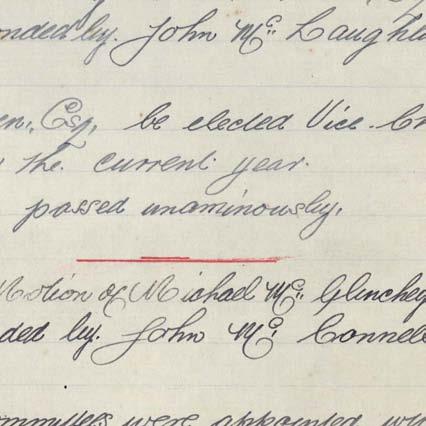 onded by. John Mc. Laughli
en, Esq, be elected Vice. Ch
the current year.
passed unaminously.
Motion of Michael Mc. Glinchey
ded by. John Mc. Connell
ommittees were appointed